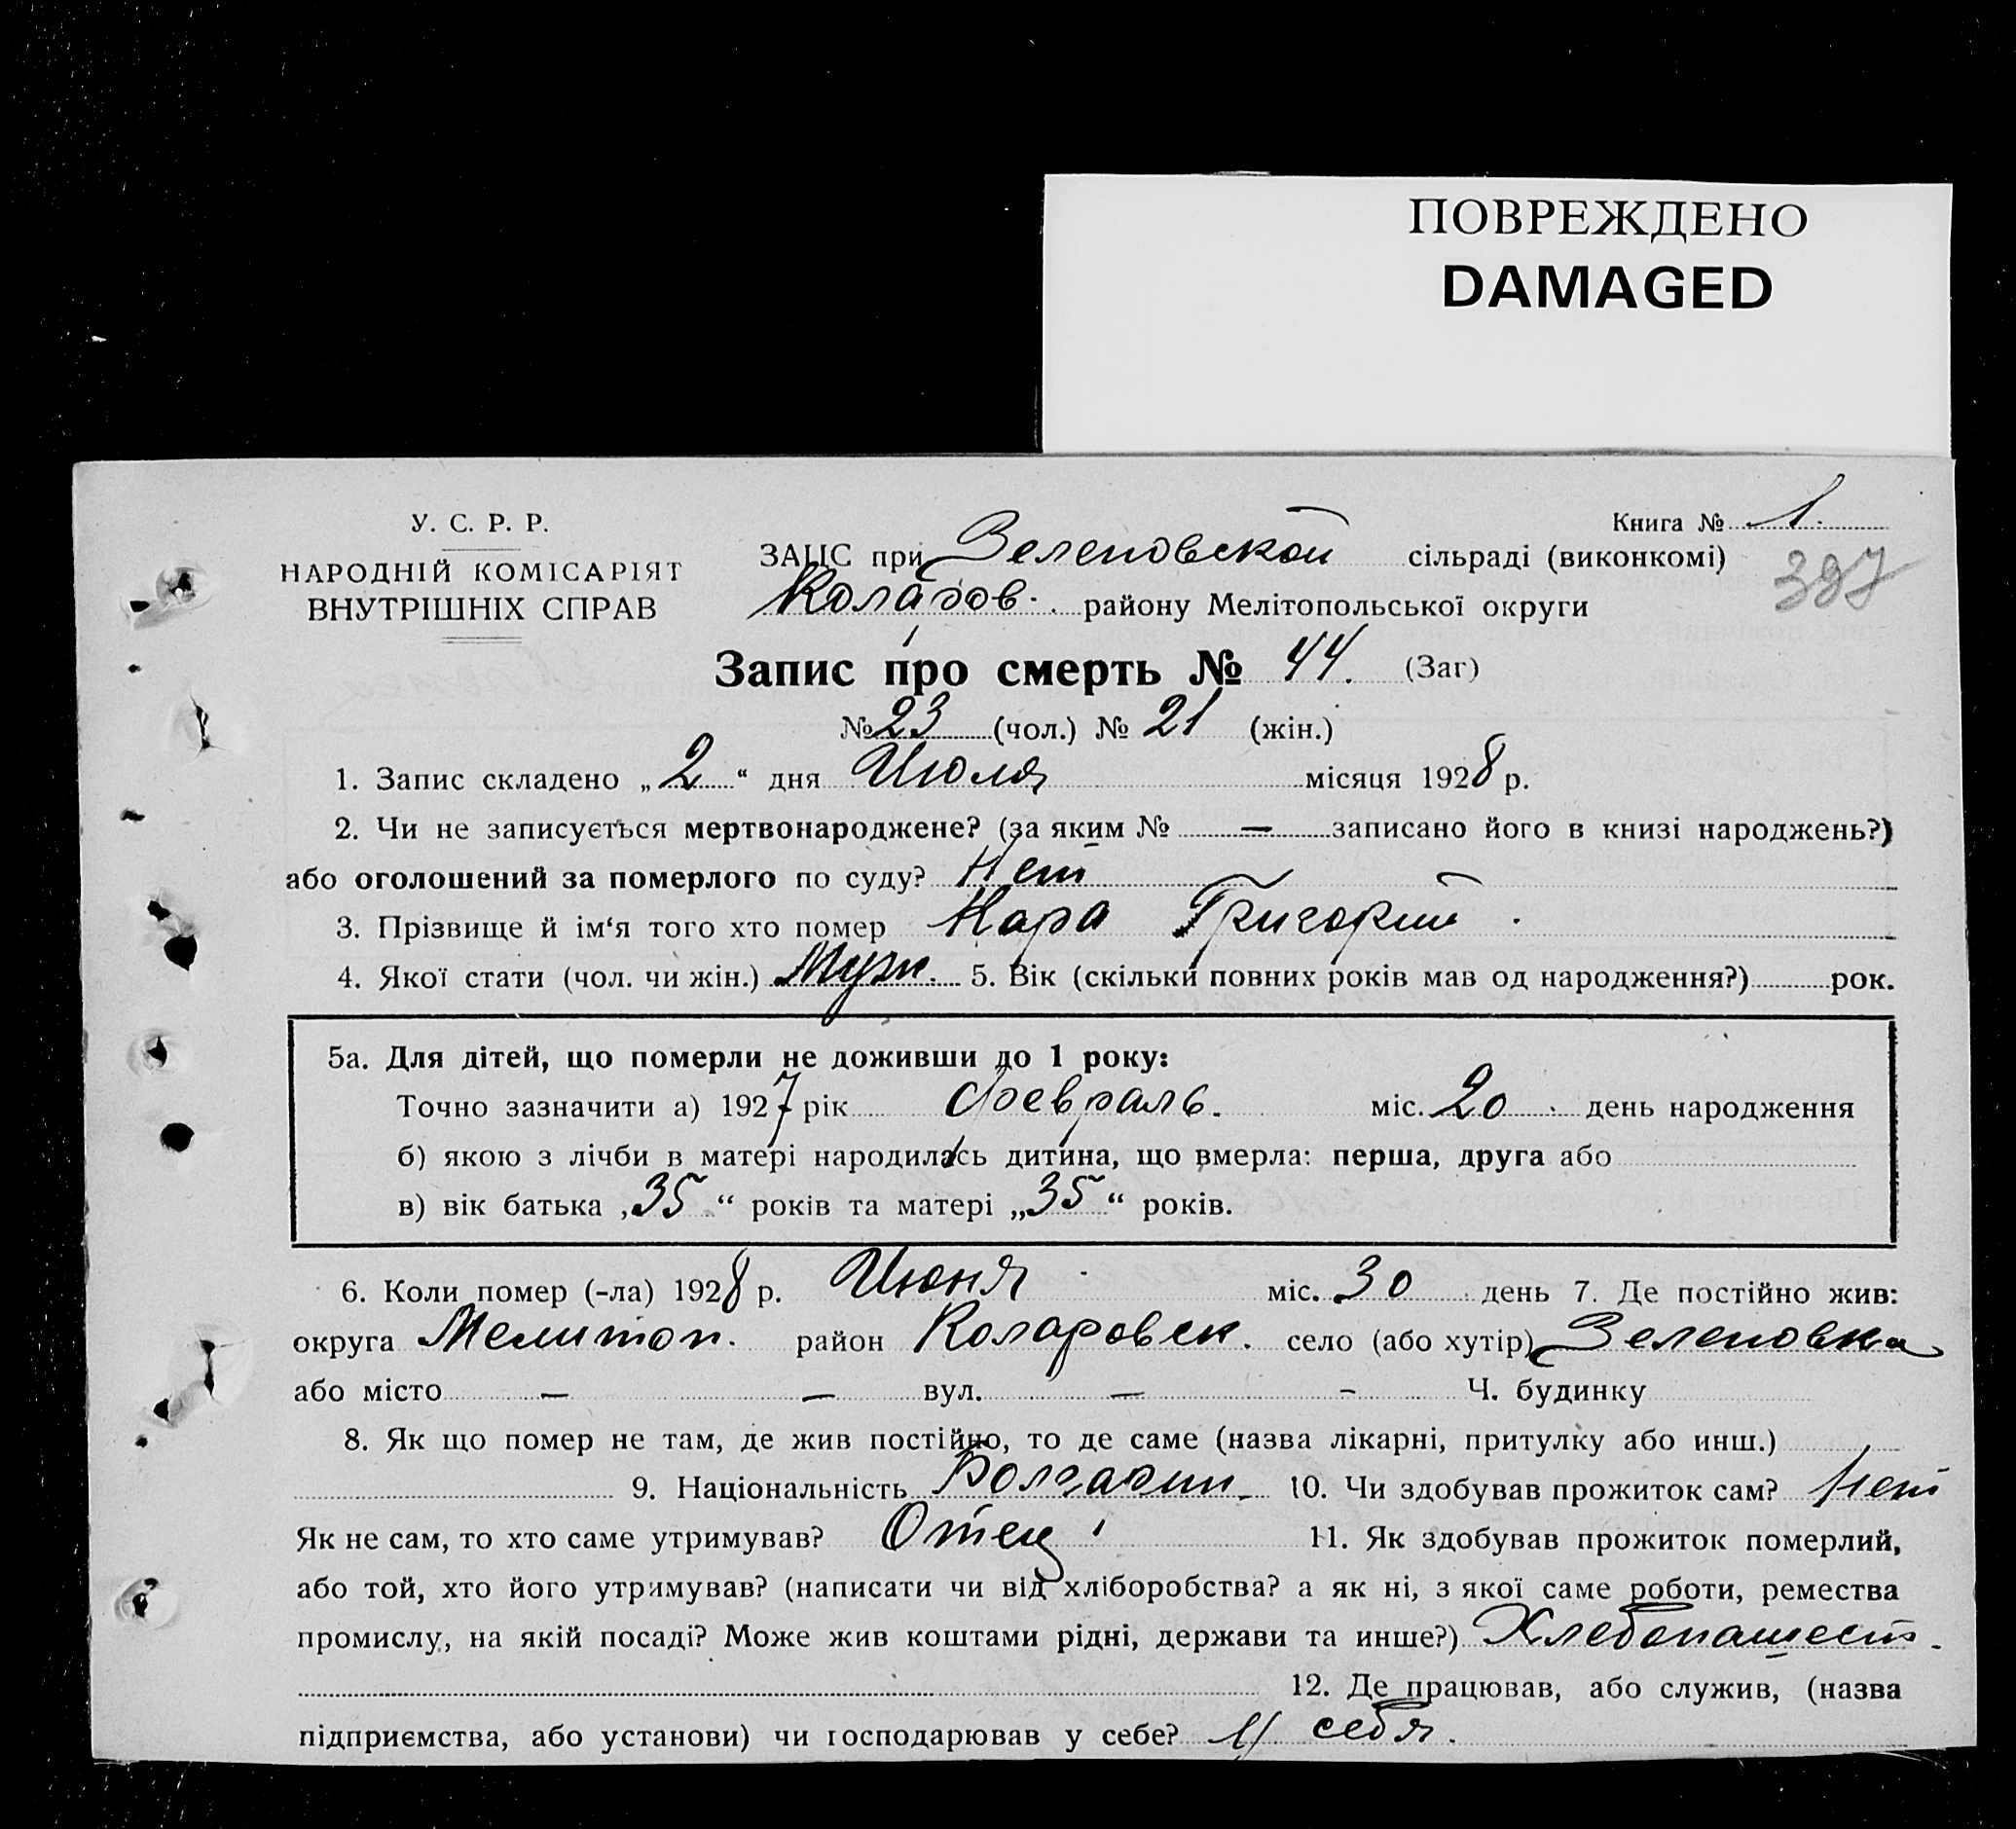 ПОВРЕЖДЕНО
DAMAGED
У. С. Р. Р.
НАРОДНІЙ КОМІСАРІЯТ
ВНУТРІШНІХ СПРАВ
Книга № 1.
397
ЗАЦС при Зеленовской сільраді (виконкомі)
Коларов. району Мелітопольської округи
Запис про смерть № 44. (Заг)
№ 23 (чол.) № 21 (жін.)
1. Запис складено „2“ дня Июля місяця 1928 р.
2. Чи не записується мертвонароджене? (за яким № — записано його в книзі народжень?)
або оголошений за померлого по суду? Нет
3. Прізвище й ім‘я того хто помер Кара Григорий.
4. Якої стати (чол. чи жін.) Муж. 5. Вік (скільки повних років мав од народження?) рок.
5а. Для дітей, що померли не доживши до 1 року:
Точно зазначити а) 1927 рік Февраль. міс. 20 день народження
б) якою з лічби в матері народилась дитина, що вмерла: перша, друга або
в) вік батька „35“ років та матері „35“ років.
6. Коли помер (-ла) 1928 р. Июня міс. 30 день 7. Де постійно жив:
округа Мелитоп. район Коларовск. село (або хутір) Зеленовка
або місто — — вул. — – Ч. будинку
8. Як що помер не там, де жив постійно, то де саме (назва лікарні, притулку або инш.)
9. Національність Болгарин. 10. Чи здобував прожиток сам? Нет
Як не сам, то хто саме утримував? Отец 11. Як здобував прожиток померлий,
або той, хто його утримував? (написати чи від хліборобства? а як ні, з якої саме роботи, ремества
промислу, на якій посаді? Може жив коштами рідні, держави та инше?) Хлебопашест.
12. Де працював, або служив, (назва
підприємства, або установи) чи господарював у себе? У себя.